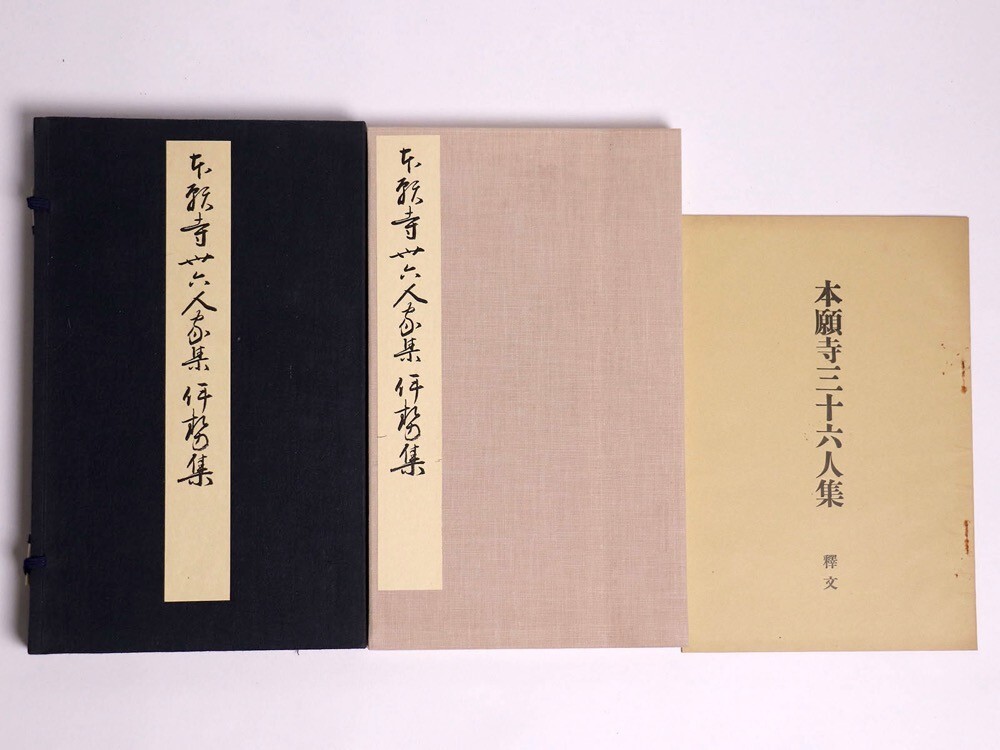 本願寺卅六人家集 伊勢集
本願寺卅六人家集 伊勢集
本願寺三十六人集
釋文